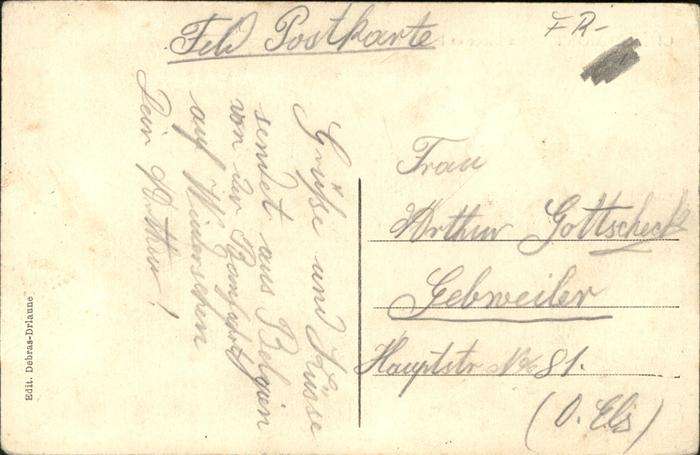 Feld Postkarte
FR-
Grüße und Küsse
sendet aus Belgien
von der
auf Wiedersehen
Dein Arthur!
Frau
Arthur Gottscheck
Gebweiler
Hauptstr No 81.
(O. Els)
Edit. Debras-Drlaune